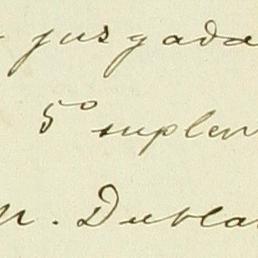 juzgado
5º suplen
M. Dublá